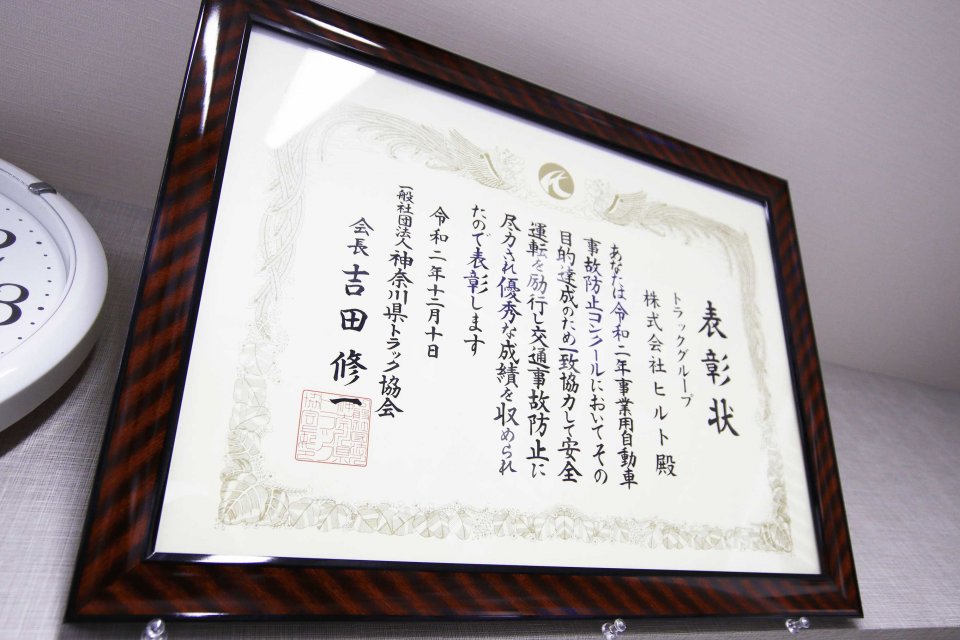 表彰状
トラックグループ
株式会社ヒルト殿
あなたは令和二年事業用自動車
事故防止コンクールにおいてその
目的達成のため一致協力して安全
運転を励行し交通事故防止に
尽力され優秀な成績を収められ
たので表彰します
令和二年十二月十日
一般社団法人神奈川県トラック協会
会長吉田修一
2
3